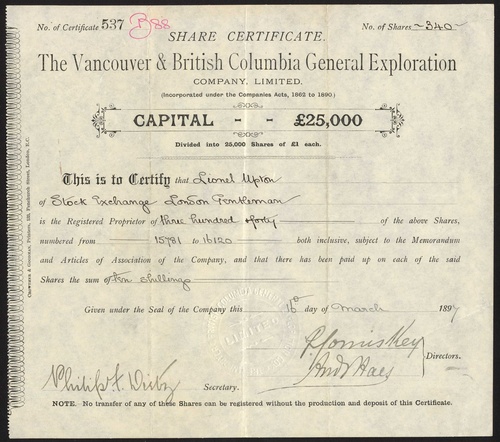 No. of Certificate 537 B88 No. of Shares ~340~
SHARE CERTIFICATE.
The Vancouver & British Columbia General Exploration
COMPANY, LIMITED.
(Incorporated under the Companies Acts, 1862 to 1890)
CAPITAL - - £25,000
Divided into 25,000 Shares of £1 each.
This is to Certify that Lionel Upton
of Stock Exchange London Gentleman
is the Registered Proprietor of three hundred & forty of the above Shares,
numbered from 15781 to 16120 both inclusive, subject to the Memorandum
and Articles of Association of the Company, and that there has been paid up on each of the said
Shares the sum of ten shillings
Given under the Seal of the Company this 16th day of March 1897
Directors.
Secretary.
NOTE. No transfer of any of these Shares can be registered without the production and deposit of this Certificate.